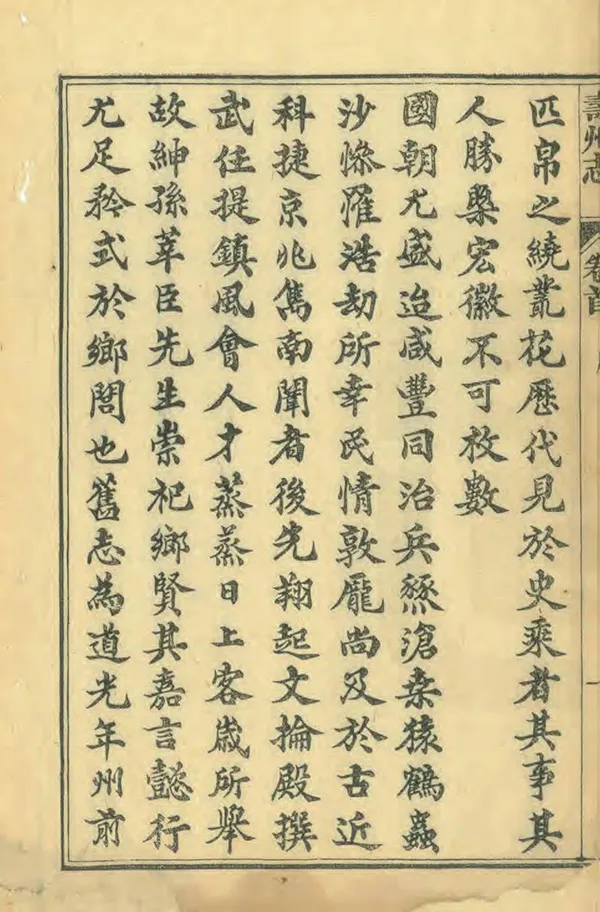 壽州志 卷首
匹帛之繞叢花歷代見於史乘者其事其
人勝槩宏徽不可枚數
國朝尤盛迨咸豐同治兵燹滄桒猿鶴蟲
沙慘罹浩劫所幸民情敦龐尚及於古近
科捷京兆雋南闈者後先翔起文掄殿撰
武任提鎮風會人才蒸蒸日上客歲所舉
故紳孫莘臣先生崇祀鄉賢其嘉言懿行
尤足矜式於鄉閭也舊志為道光年州前